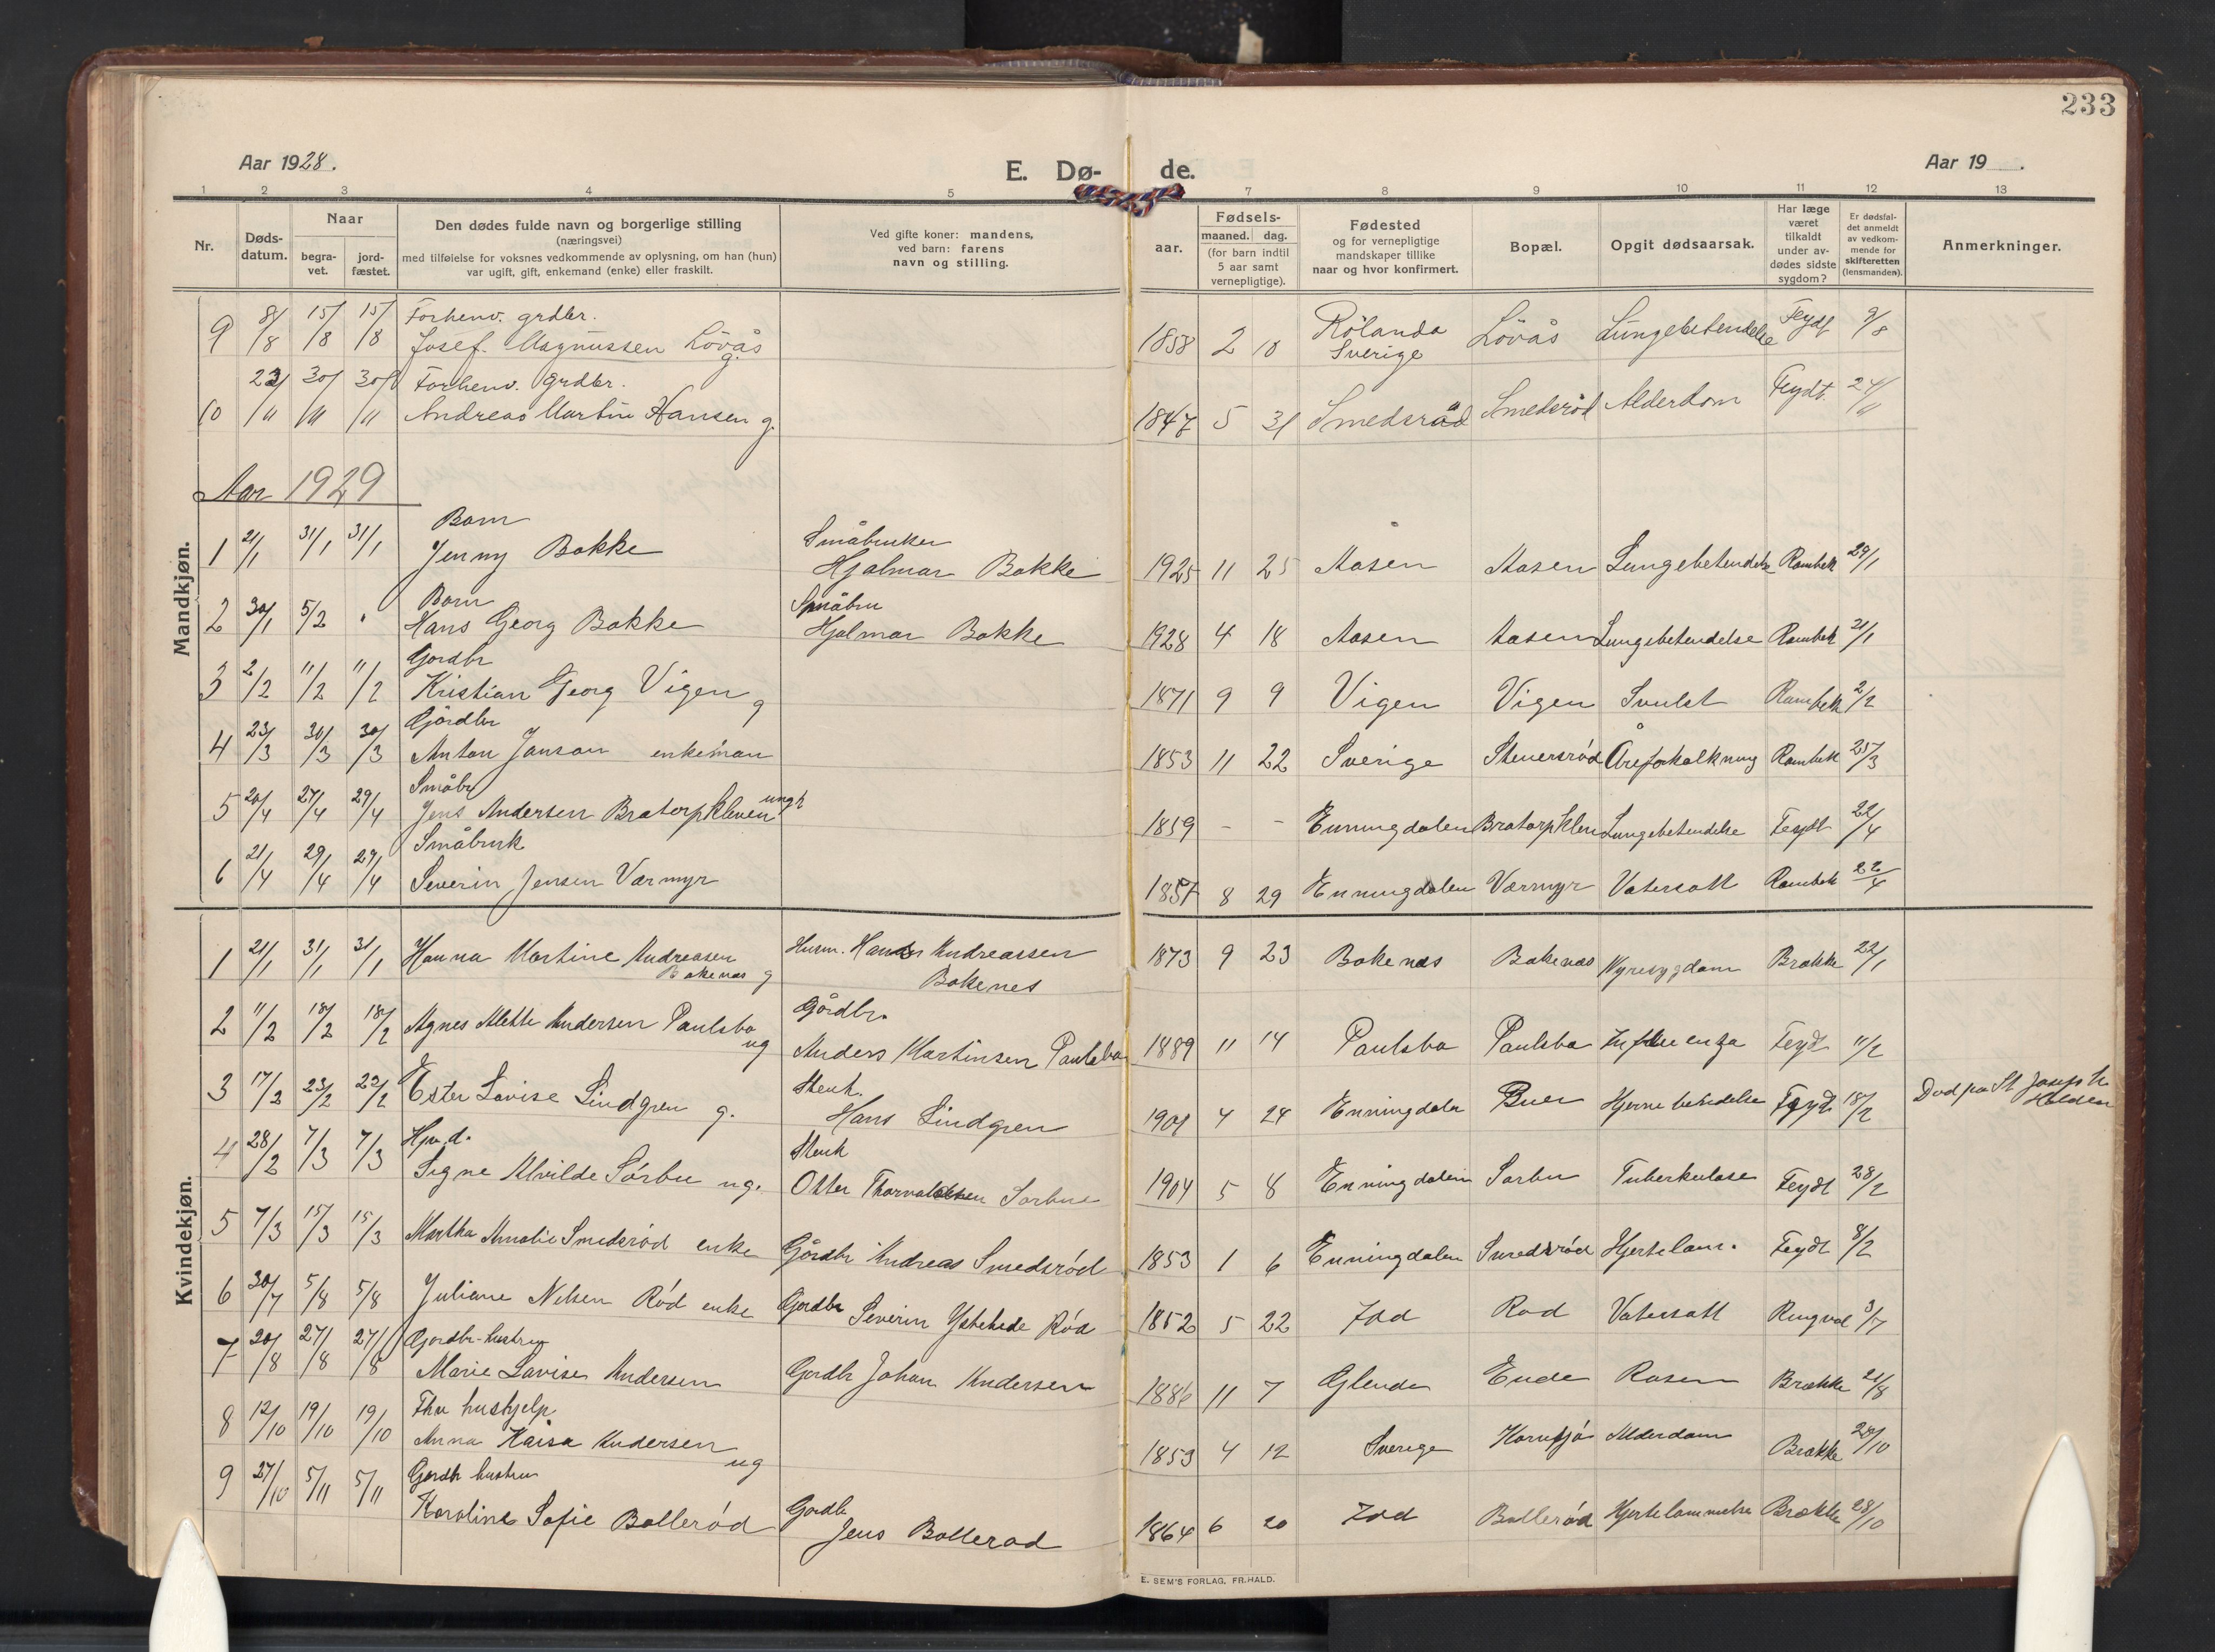 233
Aar 1928.
E. Dø-
de.
Aar 19
1 2 3 4 5 7 8 9 10 11 12 13
Nr.
Døds-
datum.
Naar
begra-
vet.
jord-
fæstet.
Den dødes fulde navn og borgerlige stilling
(næringsvei)
med tilføielse for voksnes vedkommende av oplysning, om han (hun)
var ugift, gift, enkemand (enke) eller fraskilt.
Ved gifte koner: mandens,
ved barn: farens
navn og stilling.
aar.
Fødsels-
maaned. dag.
(for barn indtil
5 aar samt
vernepligtige).
Fødested
og for vernepligtige
mandskaper tillike
naar og hvor konfirmert.
Bopæl.
Opgit dødsaarsak.
Har læge
været
tilkaldt
under av-
dødes sidste
sygdom?
Er dødsfal-
det anmeldt
av vedkom-
mende for
skifteretten
(lensmanden).
Anmerkninger.
Mandkjøn.
Forhenv. grdbr.
9 8/8 15/8 15/8 Josef Magnussen Lövås g. 1858 2 10 Rölanda Sverige Lövås Lungebetendelse Feydt 9/8
Forhenv. grdbr.
10 30/11 30/11 Andreas Martin Hansen g. 1847 5 31 Smedsröd Alderdom Feydt. 24/11
Aar 1929
Barn Småbruker
1 21/1 31/1 31/1 Jenny Bakke Hjalmar Bakke 1925 11 25 Aasen Aasen Lungebetendelse Rambek 29/1
Barn Småbru
2 30/1 5/2 " Hans Georg Bakke Hjalmar Bakke 1928 4 18 Aasen Aasen Lungebetendelse Rambek 21/1
Gårdbr
3 2/2 11/2 11/2 Kristian Georg Vigen g 1871 9 9 Vigen Vigen Svulst Rambek 2/2
Gårdbr
4 23/3 30/3 30/3 Anton Janson enkeman 1853 11 22 Sverige Stenersrød Åreforkalkning Rambek 25/3
Småbr
5 20/4 27/4 29/4 Jens Andersen Bratorpkleven ungk 1859 - - Enningdalen Bratorpklev Lungebetendelse Feydt 22/4
Småbruk
6 21/4 29/4 29/4 Severin Jensen Värmyr 8 29 Enningdalen Värmyr Vatersott Rambek 22/4
Kvindekjøn.
1 21/1 31/1 31/1 Hanna Martine Andreasen Bakenas g Husm. Andreassen Bakenes 1873 9 23 Bakenas Bakenas Nyresygdom Brække 22/1
Gårdbr.
2 11/2 18/2 18/2 Agnes Alette Andersen Paulsbo ug Anders Martinsen Paulsbo 1889 11 14 Paulsbo Paulsbo Influenza Feydt 11/2
Stenh.
3 17/2 23/2 23/2 Ester Lovise Lindgren g. Hans Lindgren 4 24 Enningdalen Buer Hjernebetendelse Feydt 18/2 Död på St Joseph Halden
Stenh
4 28/2 7/3 7/3 Signe Alvilde Sörbu ug. Otter Thorvaldsen Sorbue 1904 5 8 Enningdalen Sorbu Tuberkulose Feydt 28/2
5 7/3 15/3 15/3 Martha Amalie Smedsröd enke Gårdbr Andreas Smedsröd 1853 1 6 Enningdalen Smedsröd Hjertelam. Feydt 8/2
6 30/7 5/8 5/8 Juliane Nelsen Röd enke Gårdbr Severin Ystehede Röd 1852 5 22 Idd Rod Vatersott Ringvol 3/7
Gårdbr-hustru
7 20/8 27/8 27/8 Marie Lovise Andersen Gårdbr Johan Andersen 1886 11 7 Glende Ende Rosen Brække 21/8
Fhv hushjelp
8 12/10 19/10 19/10 Anna Kaisa Andersen ug 1853 4 12 Sverige Kornsjö Alderdom Brække
Gårdbr hustru
9 27/10 5/11 5/11 Karoline Sofie Bollerød Gårdbr Jens Bollerød 1864 6 20 Idd Bollerød Hjertelammelse Brække 28/10
E. SEM'S FORLAG, FR.HALD.